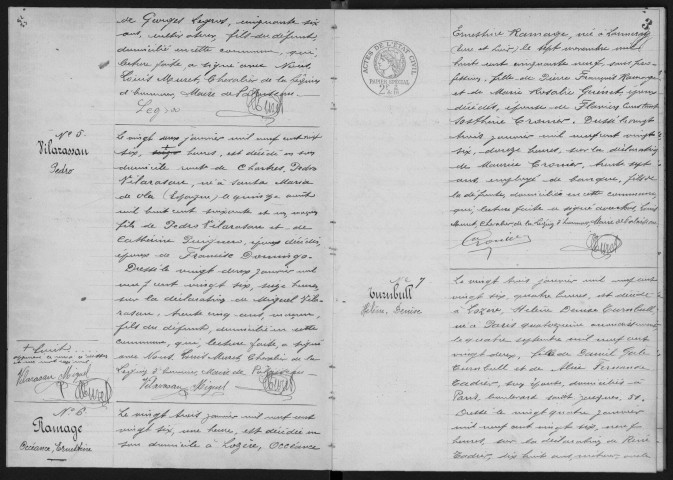 de Georges Legros, cinquante six
ans, fils du défunt,
domicilié en cette commune, qui,
lecture faite a signé avec Nous,
Louis Muret, Chevalier de la Légion
d'honneur, Maire de Palaiseau.
Legros
Muret
No 5.
Vilarasau
Pedro
Le vingt deux janvier mil neuf cent vingt
six, heures, est décédé en son
domicile route de Chartres, Pedro
Vilarasau, né à Santa Maria
de (Espagne) le quinze août
mil huit cent soixante et un
fils de Pedro Vilarasau et de
Catherine époux décédés,
époux de Francisca Domingo.
Dressé le vingt deux janvier mil
neuf cent vingt six, seize heures,
sur la déclaration de Miguel Vila-
rasau, trente cinq ans,
fils du défunt, domicilié en cette
commune, qui, lecture faite, a signé
avec Nous, Louis Muret, Chevalier de la
Légion d'honneur, Maire de Palaiseau.
Vilarasau Miguel Muret
+ huit
Vilarasau Miguel
Muret
No 6
Ramage
Océance, Ernestine
Le vingt trois janvier mil neuf cent
vingt six, une heure, est décédée en
son domicile à Lozère, Océance
3
ACTES DE L'ÉTAT CIVIL
PAPIER SPÉCIAL
Ernestine Ramage, née à
(Eure et Loir) le sept novembre mil
huit cent cinquante neuf, sans pro-
fession, fille de Pierre François Ramage
et de Marie Rosalie époux
décédés, épouse de Flavien Constant
Cronier. Dressé le vingt
trois janvier mil neuf cent vingt
six, heures, sur la déclaration
de Maurice Cronier, trente sept
ans employé de banque, fils de
la défunte, domicilié en cette commune,
qui, lecture faite a signé avec Nous, Louis
Muret, Chevalier de la Légion d'honneur, Maire de Palaiseau.
Cronier
Muret
No 7
Turnbull
Hélène, Denise
Le vingt trois janvier mil neuf cent
vingt six, quatre heures, est décédée
à Lozère, Hélène Denise Turnbull
née à Paris quatorzième arrondissement
le quatre septembre mil neuf cent
vingt deux, fille de Daniel
Turnbull et de Marie Fernande
Cadier, ses époux, domiciliés à
Paris, boulevard Saint Jacques, 51.
Dressé le vingt quatre janvier
mil neuf cent vingt six, neuf
heures, sur la déclaration de René
Cadier, dix huit ans, oncle